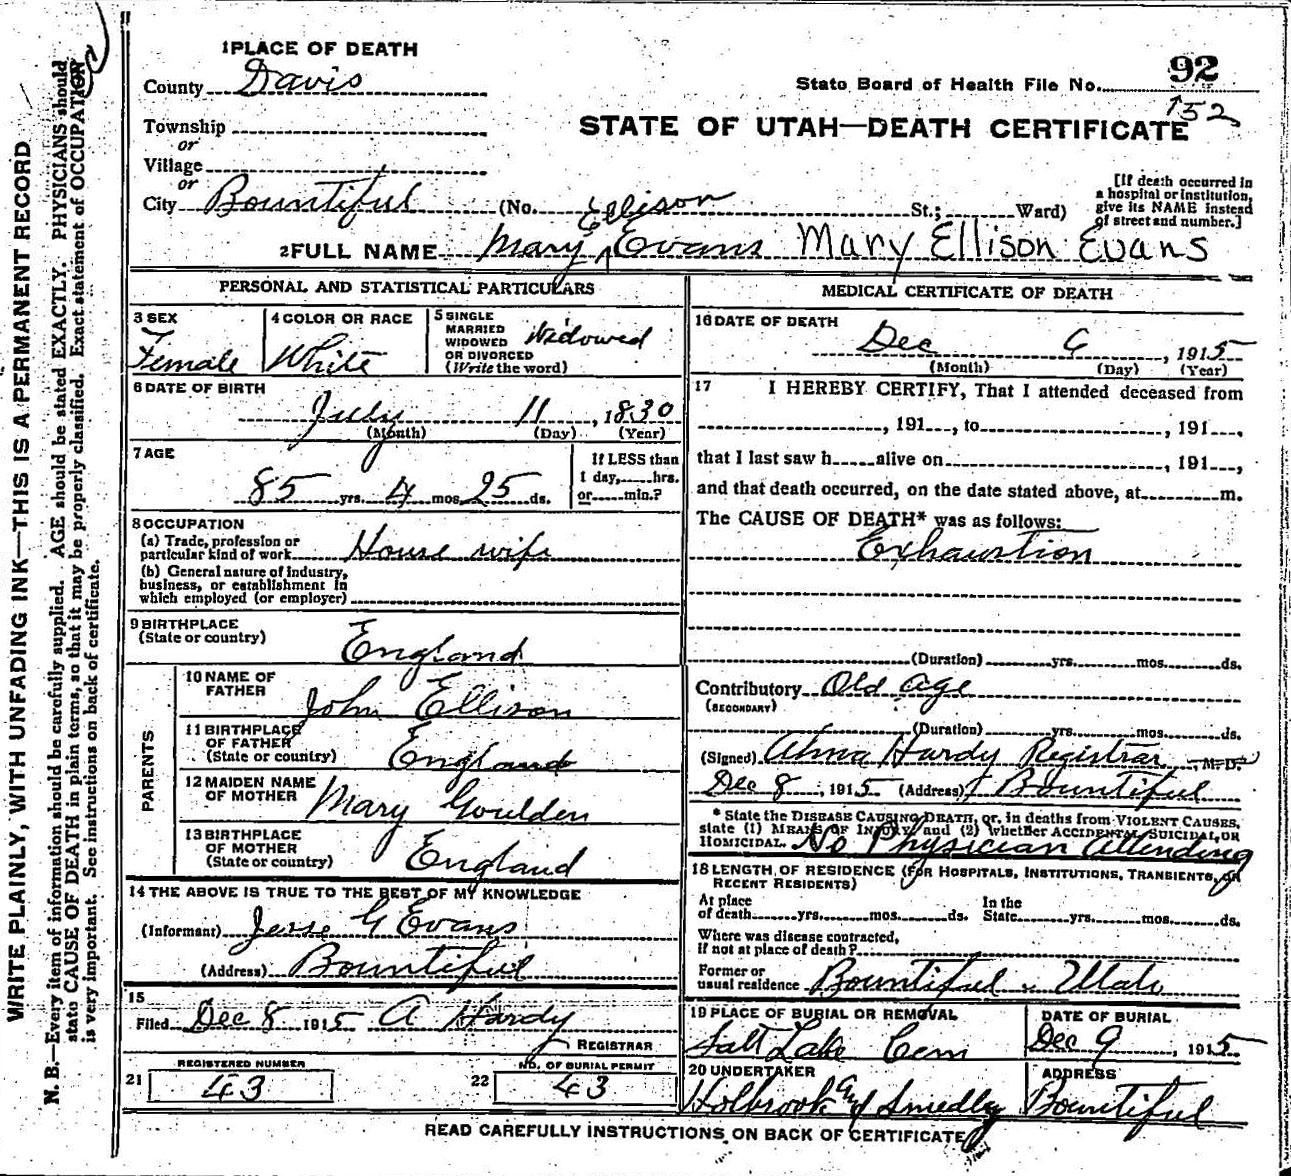 WRITE PLAINLY, WITH UNFADING INK—THIS IS A PERMANENT RECORD
N. B.—Every item of information should be carefully supplied. AGE should be stated EXACTLY. PHYSICIANS should
state CAUSE OF DEATH in plain terms, so that it may be properly classified. Exact statement of OCCUPATION
is very important. See instructions on back of certificate.
1 PLACE OF DEATH
County Davis
Township
or
Village
or
City Bountiful (No. St.; Ward)
State Board of Health File No. 92
152
STATE OF UTAH—DEATH CERTIFICATE
[If death occurred in
a hospital or institution,
give its NAME instead
of street and number.]
Ellison
2 FULL NAME Mary Evans Mary Ellison Evans
PERSONAL AND STATISTICAL PARTICULARS
3 SEX
Female
4 COLOR OR RACE
White
5 SINGLE
MARRIED
WIDOWED
OR DIVORCED
(Write the word)
Widowed
6 DATE OF BIRTH
July 11, 1830
(Month) (Day) (Year)
7 AGE
85 yrs. 4 mos. 25 ds.
If LESS than
1 day, hrs.
or min.?
8 OCCUPATION
(a) Trade, profession or
particular kind of work House wife
(b) General nature of industry,
business, or establishment in
which employed (or employer)
9 BIRTHPLACE
(State or country)
England
PARENTS
10 NAME OF
FATHER
John Ellison
11 BIRTHPLACE
OF FATHER
(State or country)
England
12 MAIDEN NAME
OF MOTHER
Mary Goulden
13 BIRTHPLACE
OF MOTHER
(State or country)
England
14 THE ABOVE IS TRUE TO THE BEST OF MY KNOWLEDGE
(Informant) Jesse G Evans
(Address) Bountiful
15
Filed Dec 8 1915 A Hardy
REGISTRAR
REGISTERED NUMBER
21 43
NO. OF BURIAL PERMIT
22 43
MEDICAL CERTIFICATE OF DEATH
16 DATE OF DEATH
Dec 6, 1915
(Month) (Day) (Year)
17 I HEREBY CERTIFY, That I attended deceased from
, 191 , to , 191 ,
that I last saw h alive on , 191 ,
and that death occurred, on the date stated above, at m.
The CAUSE OF DEATH* was as follows:
Exhaustion
(Duration) yrs. mos. ds.
Contributory Old age
(SECONDARY)
(Duration) yrs. mos. ds.
(Signed) Alma Hardy Registrar, M. D.
Dec 8, 1915 (Address) Bountiful
* State the DISEASE CAUSING DEATH, or, in deaths from VIOLENT CAUSES,
state (1) MEANS OF INJURY and (2) whether ACCIDENTAL, SUICIDAL, OR
HOMICIDAL. No Physician Attending
18 LENGTH OF RESIDENCE (FOR HOSPITALS, INSTITUTIONS, TRANSIENTS, OR
RECENT RESIDENTS)
At place
of death yrs. mos. ds.
In the
State yrs. mos. ds.
Where was disease contracted,
if not at place of death?
Former or
usual residence Bountiful Utah
19 PLACE OF BURIAL OR REMOVAL
Salt Lake Cem
DATE OF BURIAL
Dec 9, 1915
20 UNDERTAKER
Holbrook and Smedley
ADDRESS
Bountiful
READ CAREFULLY INSTRUCTIONS ON BACK OF CERTIFICATE